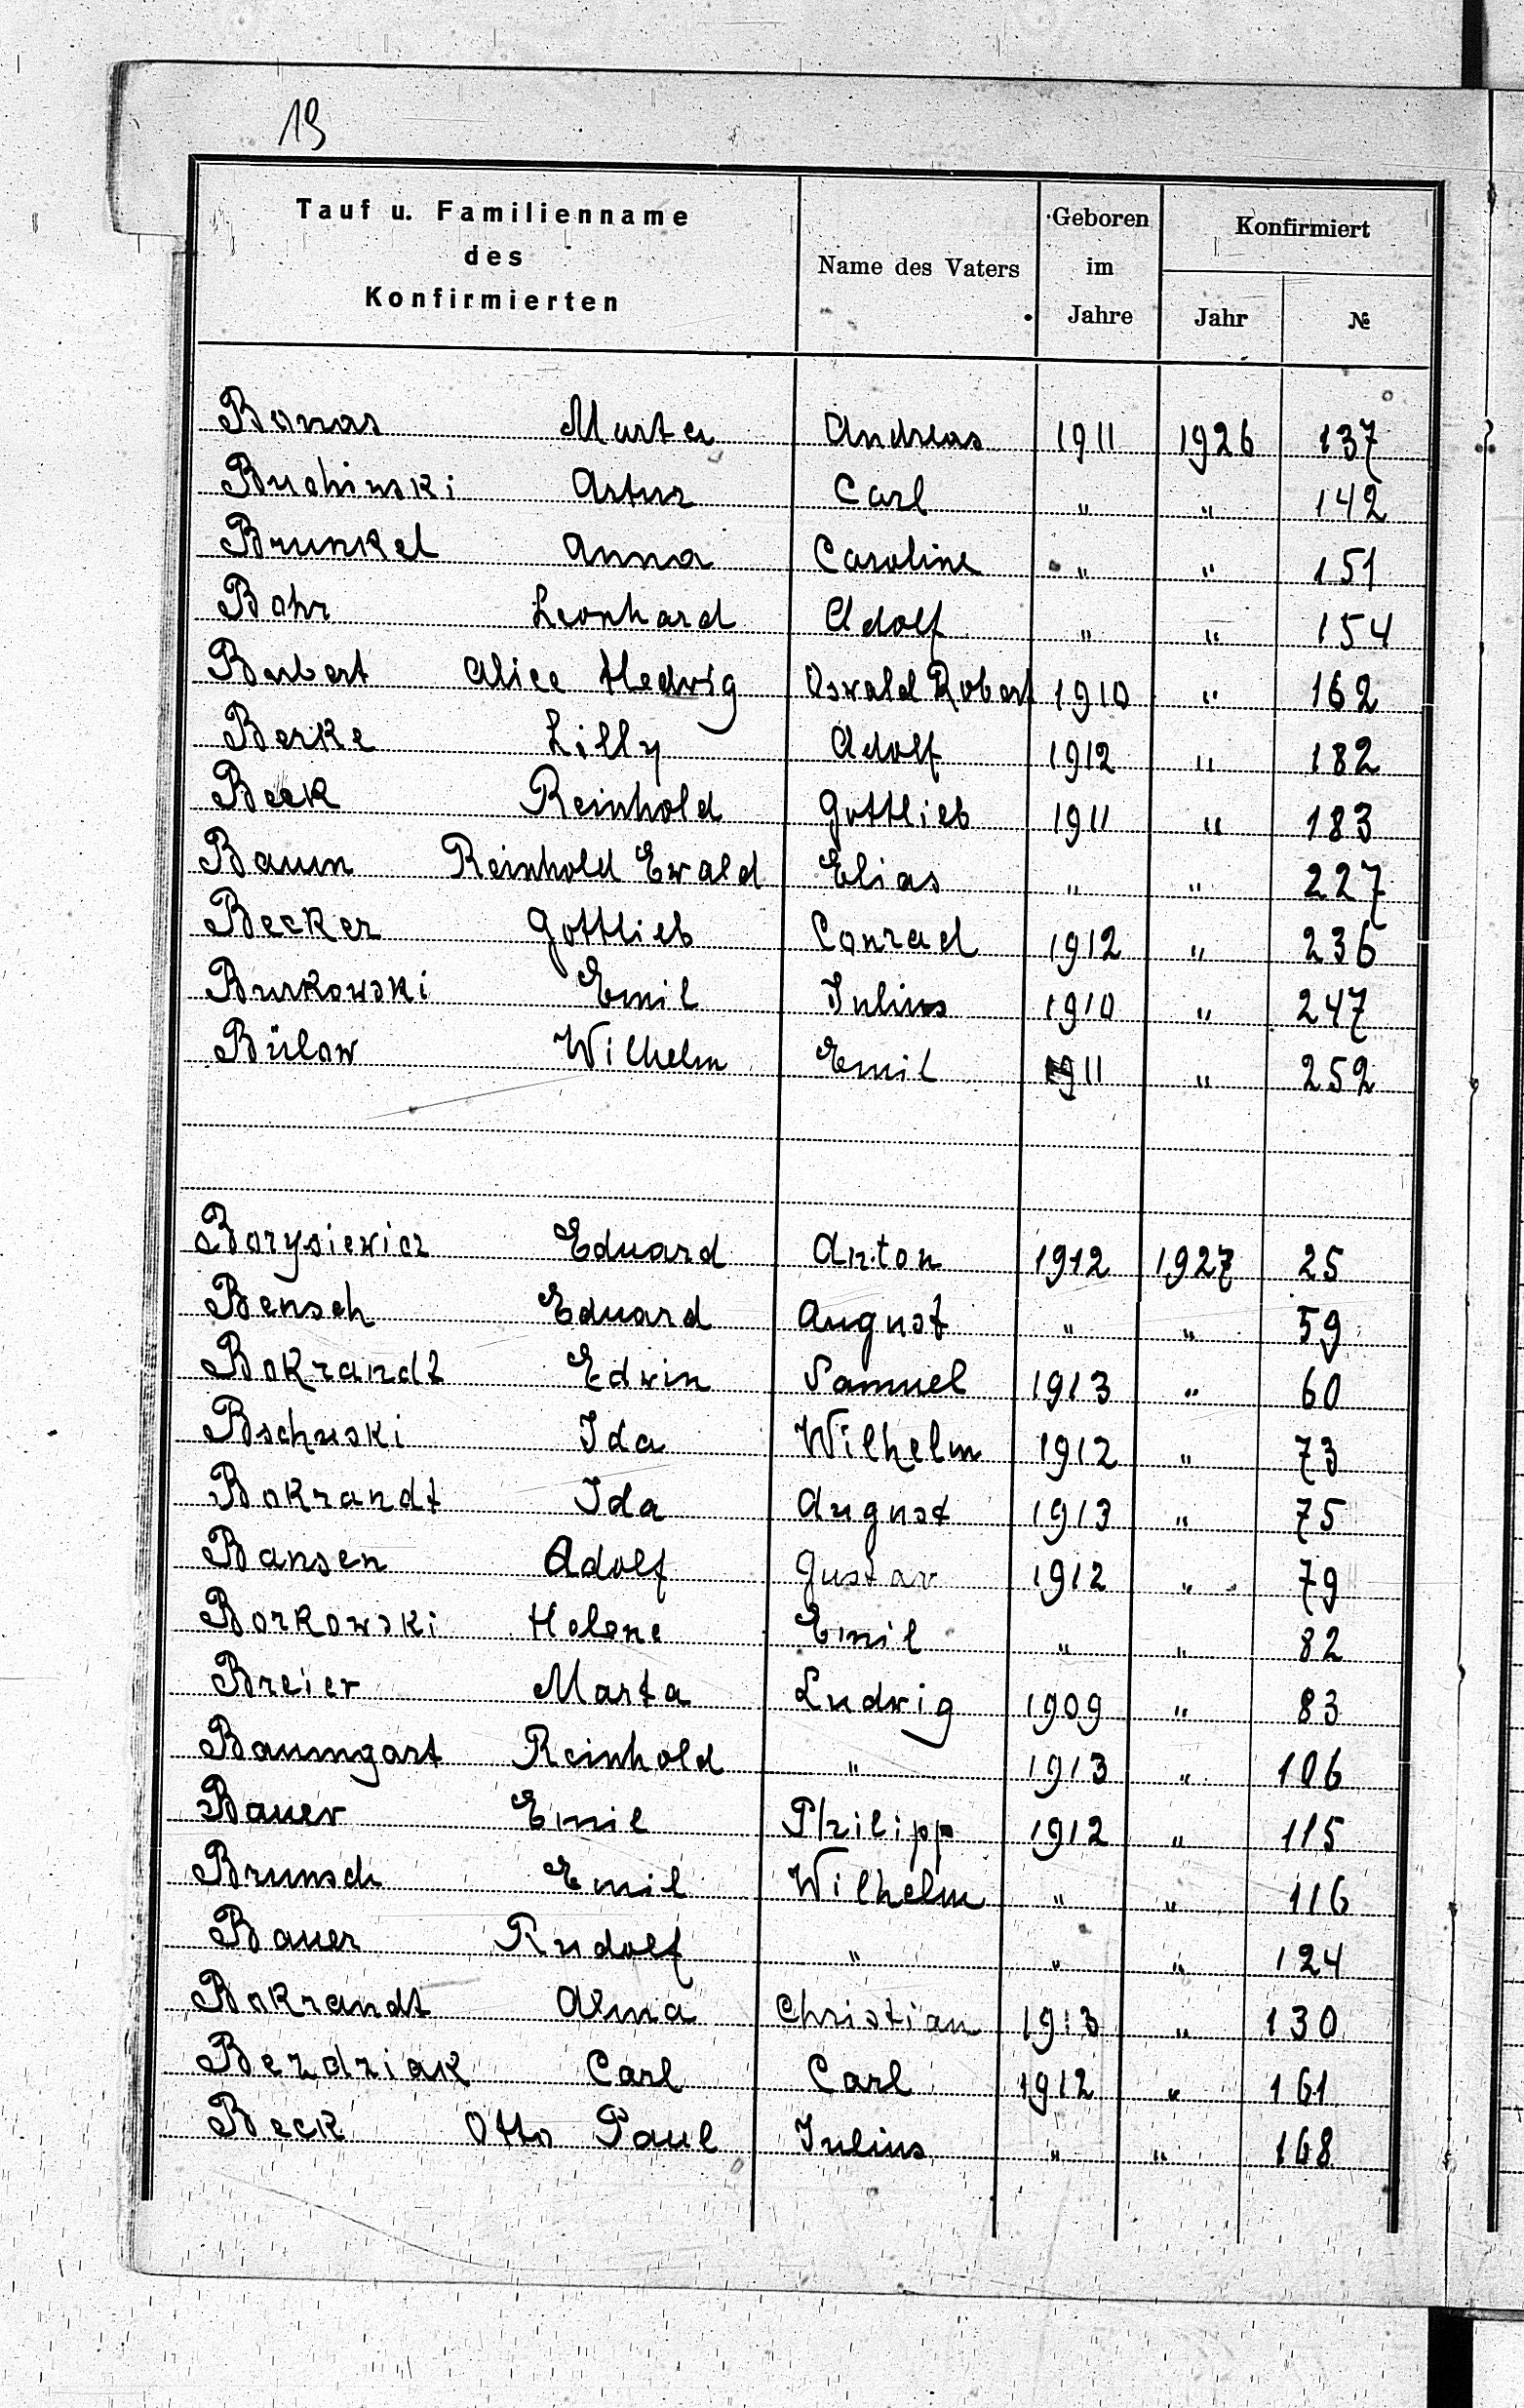 19
Tauf u. Familienname
des
Konfirmierten
Name des Vaters
Geboren
im
Jahre
Konfirmiert
Jahr
№
Bonas Marta Andreas 1911 1926 137
Buchinski Artur Carl " " 142
Brunkel Anna Caroline " " 151
Bohr Leonhard Adolf " " 154
Barbert Alice Hedwig Oswald Robert 1910 " 162
Berke Lilly Adolf 1912 " 182
Beck Reinhold Gottlieb 1911 " 183
Baum Reinhold Ewald Elias " " 227
Becker Gottlieb Conrad 1912 " 236
Burkowski Emil Julius 1910 " 247
Bülow Wilhelm Emil 1911 " 252
Borysiewicz Eduard Anton 1912 1927 25
Bensch Eduard August " " 59
Bokrandt Edwin Samuel 1913 " 60
Bschuski Ida Wilhelm 1912 " 73
Bokrandt Ida August 1913 " 75
Bansen Adolf Gustav 1912 " 79
Borkowski Helene Emil " " 82
Breier Marta Ludwig 1909 " 83
Baumgart Reinhold " 1913 " 106
Bauer Emil Philipp 1912 " 115
Brunsch Emil Wilhelm " " 116
Bauer Rudolf " " " 124
Bokrandt Alma Christian 1913 " 130
Bezdziak Carl Carl 1912 " 161
Beck Otto Paul Julius " " 168